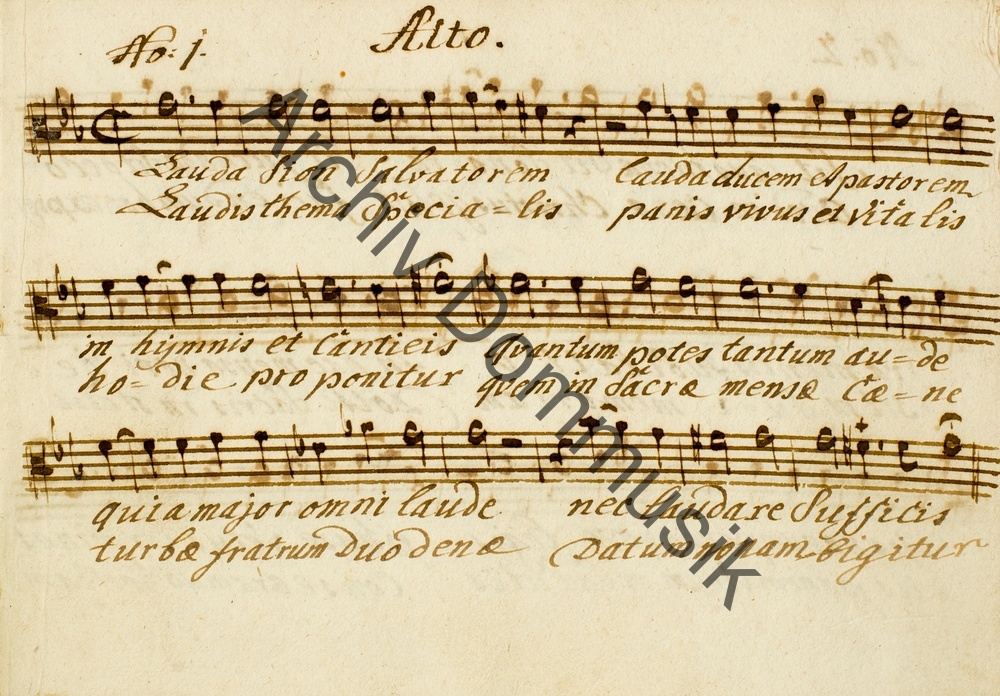 No: 1.
Alto.
Lauda Sion Salvatorem lauda ducem et pastorem
Laudis thema Specia=lis panis vivus et vitalis
in hijmnis et Canticis quantum potes tantum au=de
ho=die proponitur quem in Sacræ mensæ Cæ=ne
quia major omni laude nec laudare Sufficis
turbæ fratrum Duodenæ Datum non ambigitur
Archiv Dommusik